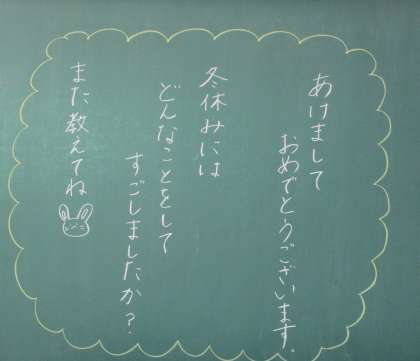 あけまして
おめでとうございます.
冬休みには
どんなことをして
すごしましたか?
また教えてね